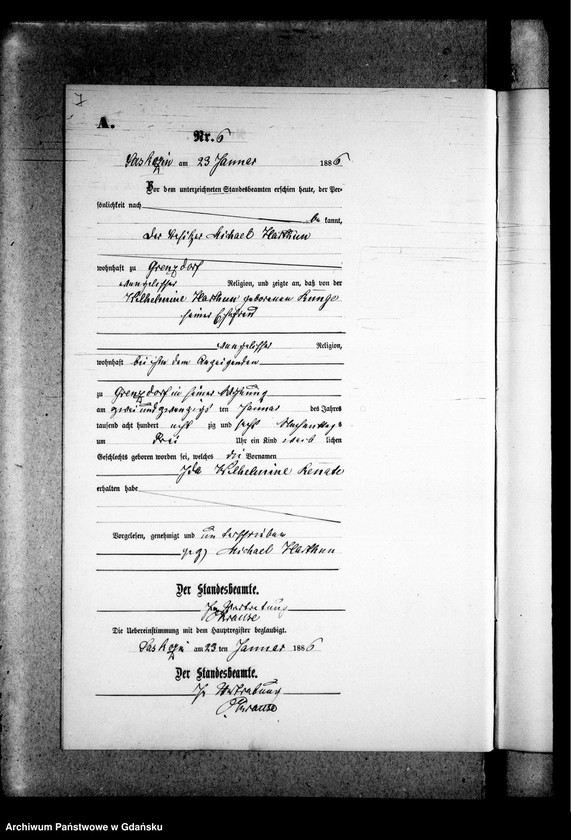 7
A.
Nr. 6
Saskozin am 23 Januar 1886
Vor dem unterzeichneten Standesbeamten erschien heute, der Per-
sönlichkeit nach
be kannt,
der Besitzer Michael Harthun
wohnhaft zu Grenzdorf
evangelischer Religion, und zeigte an, daß von der
Wilhelmine Harthun geborenen Runge
seiner Ehefrau
evangelischer Religion,
wohnhaft bei ihm dem Anzeigenden
zu Grenzdorf in seiner Wohnung
am zwei und zwanzigs ten Januar des Jahres
tausend acht hundert acht zig und sechs Nachmittags
um drei Uhr ein Kind weib lichen
Geschlechts geboren worden sei, welches die Vornamen
Ida Wilhelmine Renate
erhalten habe
Vorgelesen, genehmigt und unterschrieben
gez) Michael Harthun
Der Standesbeamte.
In Vertretung
Krause
Die Uebereinstimmung mit dem Hauptregister beglaubigt.
Saskozin am 23 ten Januar 1886
Der Standesbeamte.
In Vertretung
Krause
Archiwum Państwowe w Gdańsku